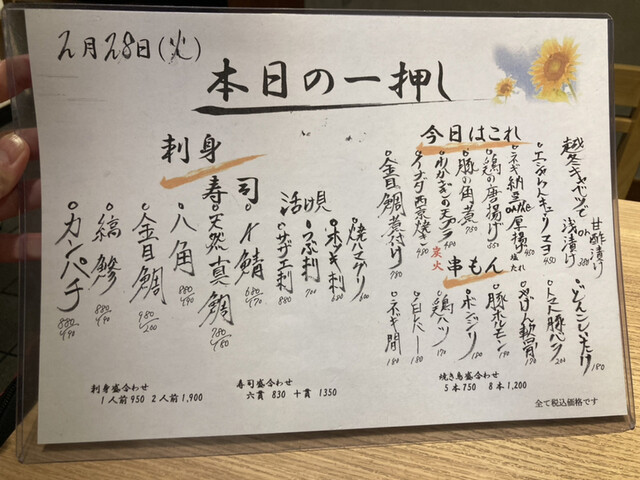 2月28日(火)
本日の一押し
今日はこれ
越冬キャベツで
甘酢漬け
or
浅漬け
380
エシャレットキューリ マヨ
450
ネギ納豆
or
厚揚
450
鶏の唐揚げ
650
豚の角煮
750
わかさぎの天プラ
西京焼
金目鯛煮付け
780
炭火
串もん
どんこしいたけ
180
トマト豚バラ
200
やげん軟骨
170
豚ホルモン
190
ボンジリ
170
鶏ハツ
170
白たー
180
ネギ間
180
刺身
寿司
活け貝
焼ハマグリ
ホッキ刺
つぶ刺
700
サザエ刺
880
〆鯖
680/470
天然真鯛
780/480
八角
880/490
金目鯛
980/200
縞鯵
880/490
カンパチ
880/490
刺身盛合わせ
1人前950 2人前1,900
寿司盛合わせ
六貫 830 十貫 1350
焼き鳥盛合わせ
5本750 8本1,200
全て税込価格です